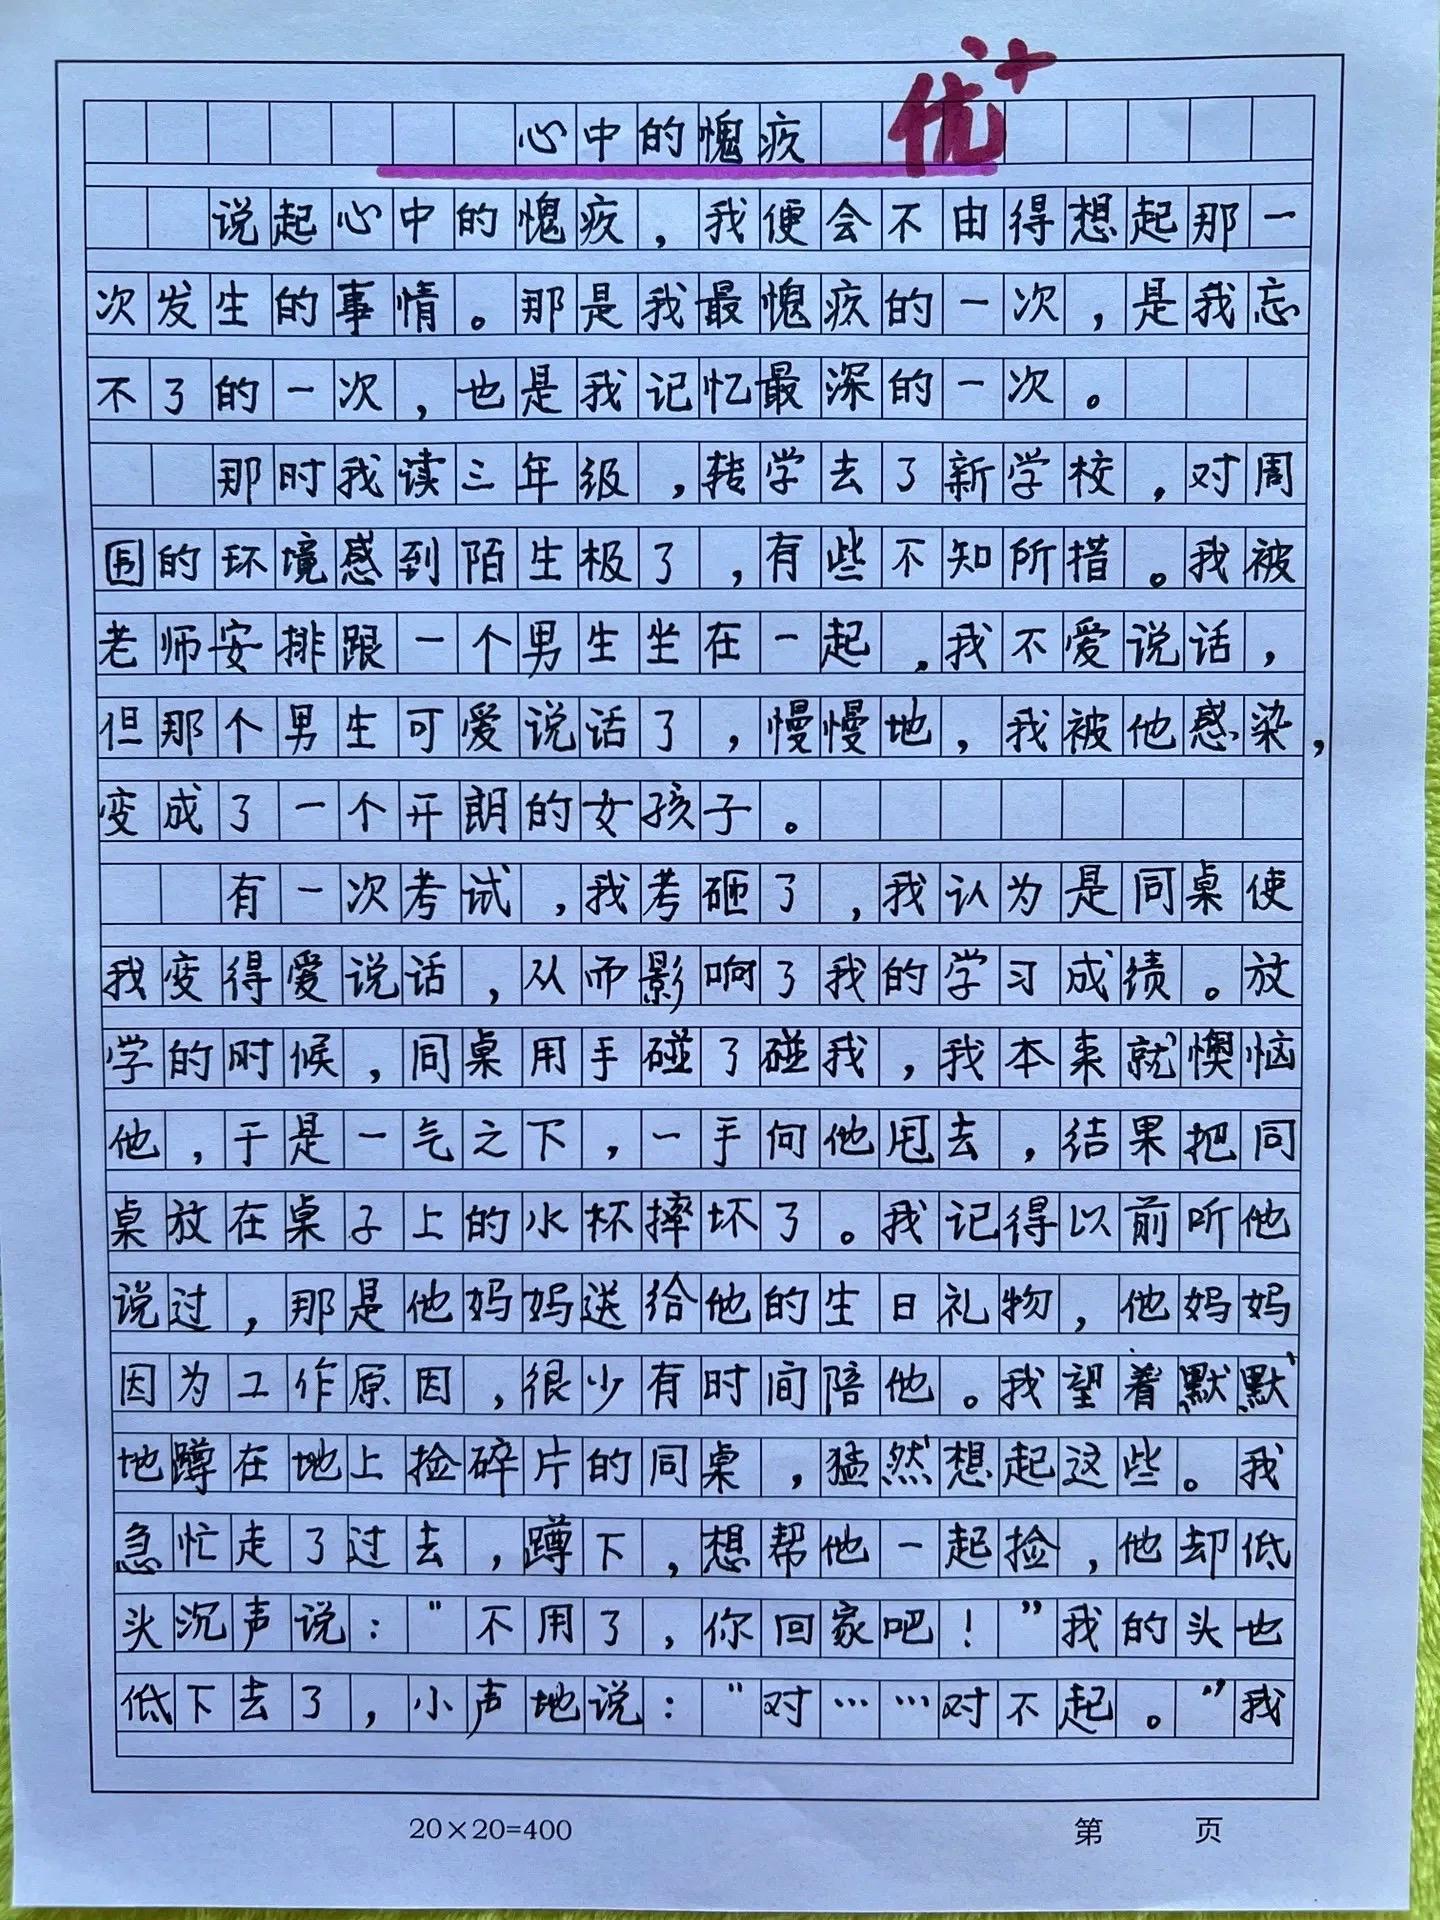 心中的愧疚 优+
说起心中的愧疚，我便会不由得想起那一
次发生的事情。那是我最愧疚的一次，是我忘
不了的一次，也是我记忆最深的一次。
那时我读三年级，转学去了新学校，对周
围的环境感到陌生极了，有些不知所措。我被
老师安排跟一个男生坐在一起，我不爱说话，
但那个男生可爱说话了，慢慢地，我被他感染，
变成了一个开朗的女孩子。
有一次考试，我考砸了，我认为是同桌使
我变得爱说话，从而影响了我的学习成绩。放
学的时候，同桌用手碰了碰我，我本来就懊恼
他，于是一气之下，一手向他甩去，结果把同
桌放在桌子上的水杯摔坏了。我记得以前听他
说过，那是他妈妈送给他的生日礼物，他妈妈
因为工作原因，很少有时间陪他。我望着默默
地蹲在地上捡碎片的同桌，猛然想起这些。我
急忙走了过去，蹲下，想帮他一起捡，他却低
头沉声说：“不用了，你回家吧！”我的头也
低下去了，小声地说：“对……对不起。”我
20×20=400 第 页